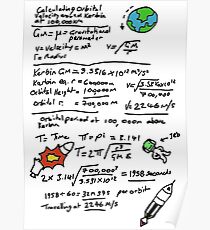 Calculating Orbital
Velocity around Kerbin
at 100,000m
GM = μ = Gravitational
parameter
V = Velocity = m/s
r = Radius
V = √GM/r
Kerbin GM = 3.5316 × 10¹² m³/s²
Kerbin eq. r = 600000m
Orbital height = 100000m
Orbital r. = 700,000m
V = √3.5316×10¹²/700,000
V = 2246 m/s
Orbital period at 100 000m above
Kerbin
T = Time π = pi = 3.141
Jeb
T = 2π √r³/GM
2 × 3.141 √700,000³/3.531×10¹² = 1958 seconds
1958 ÷ 60 = 32m 37s per orbit
Travelling at 2246 m/s